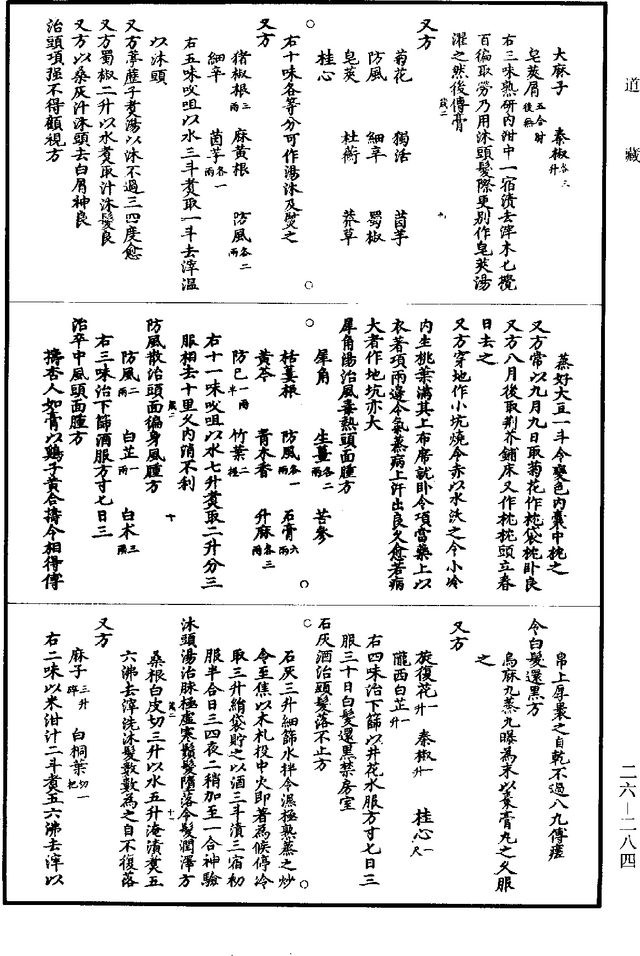 道藏
大麻子　秦椒各三升
皂莢屑五合
右三味熟研內泔中一宿漬去滓木匕攪
百徧取勞乃用沐頭髮際更別作皂莢湯
濯之然後傅膏
又方
菊花　獨活　茵芋
防風　細辛　蜀椒
皂莢　杜蘅　莽草
桂心
右十味各等分可作湯沐及熨之
又方
豬椒根三兩　麻黃根　防風各二兩
細辛　茵芋各一兩
右五味㕮咀以水三斗煮取一斗去滓溫
以沐頭
又方葶藶子煮湯以沐不過三四度愈
又方蜀椒二升以水煮取汁沐髮良
又方以桑灰汁沐頭去白屑神良
治頭項強不得顧視方
蒸好大豆一斗令變色內囊中枕之
又方常以九月九日取菊花作枕袋枕臥良
又方八月後取荊芥鋪床又作枕枕頭立春
日去之
又方穿地作小坑燒令赤以水沃之令小冷
內生桃葉滿其上布席就臥令項當藥上以
衣著項兩邊令氣蒸病上汗出良久愈若病
大者作地坑亦大
犀角湯治風毒熱頭面腫方
犀角　生薑各二兩　苦參
栝蔞根　防風各一兩　石膏六兩
黃芩　青木香　升麻各三兩
防己一兩半　竹葉二握
右十一味㕮咀以水七升煮取二升分三
服相去十里久內消不利
防風散治頭面徧身風腫方
防風二兩　白芷一兩　白朮三兩
右三味治下篩酒服方寸匕日三
治卒中風頭面腫方
擣杏人如膏以雞子黃合擣令相得傅
帛上厚裹之自乾不過八九傅瘥
令白髮還黑方
烏麻九蒸九曝為末以棗膏丸之久服
之
又方
旋復花一升　秦椒一升　桂心一尺
隴西白芷一升
右四味治下篩以井花水服方寸匕日三
服三十日白髮還黑禁房室
石灰酒治頭髮落不止方
石灰三升細篩水拌令濕極熟蒸之炒
令至焦以木札投中火即著為候停冷
取三升絹袋貯之以酒三斗漬三宿初
服半合日三四夜二稍加至一合神驗
沐頭湯治脉極虛寒鬚髮墮落令髮潤澤方
桑根白皮切三升以水五升淹漬煮五
六沸去滓洗沐髮數數為之自不復落
又方
麻子三升碎　白桐葉切一把
右二味以米泔汁二斗煮五六沸去滓以
二六—二八四